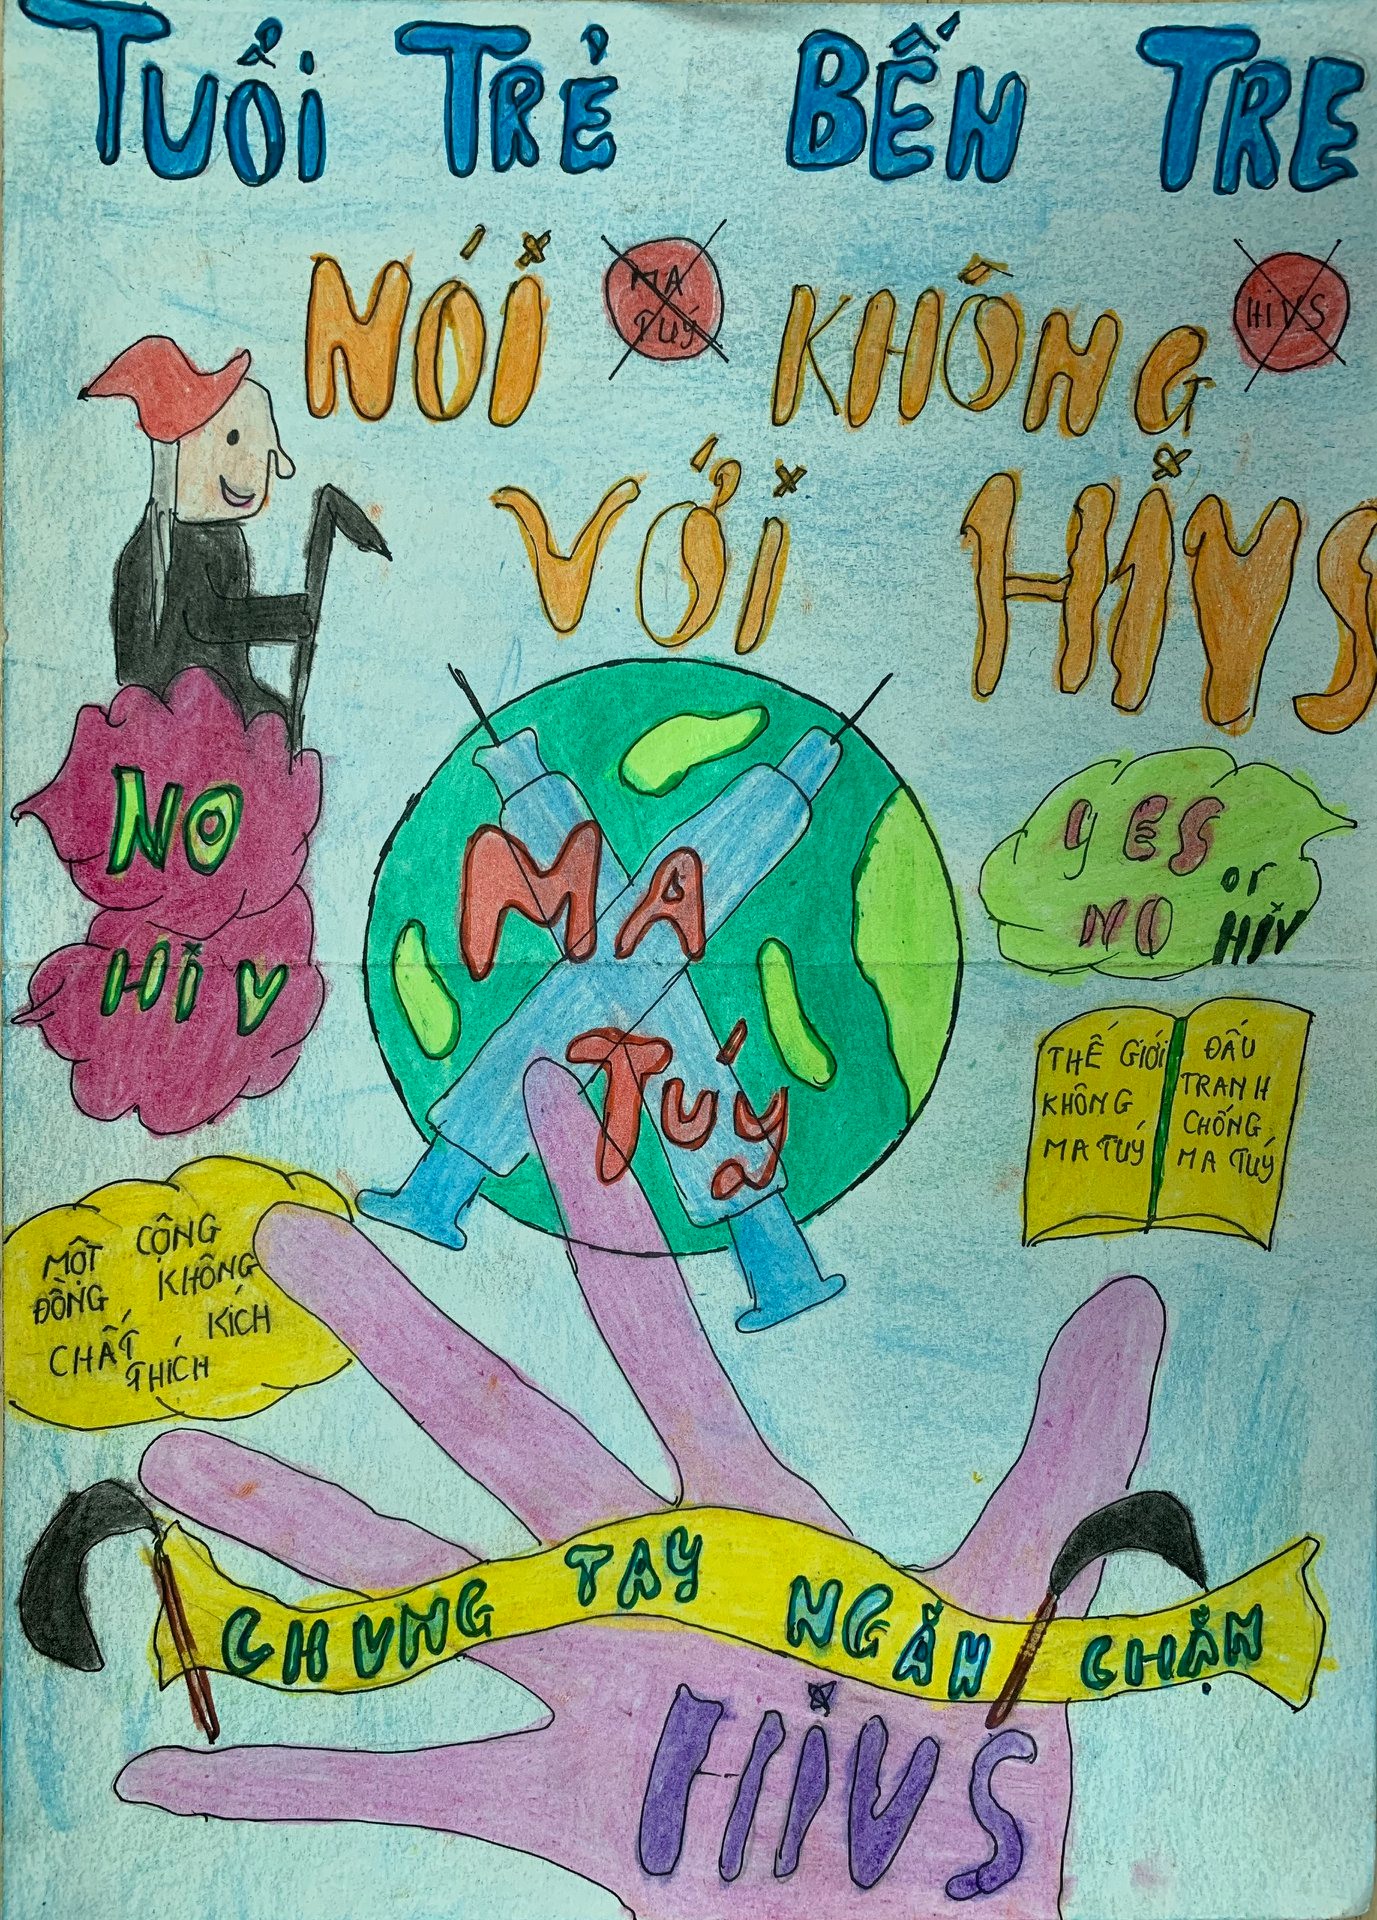 TUỔI TRẺ BẾN TRE
NÓI KHÔNG
MA
TUÝ
HIVS
VỚI HIVS
NO
HIV
MA
TUÝ
YES
or
NO HIV
THẾ GIỚI
KHÔNG
MA TUÝ
ĐẤU
TRANH
CHỐNG
MA TUÝ
MỘT CỘNG
ĐỒNG KHÔNG
CHẤT KÍCH
THÍCH
CHUNG TAY NGĂN CHẶN
HIVS